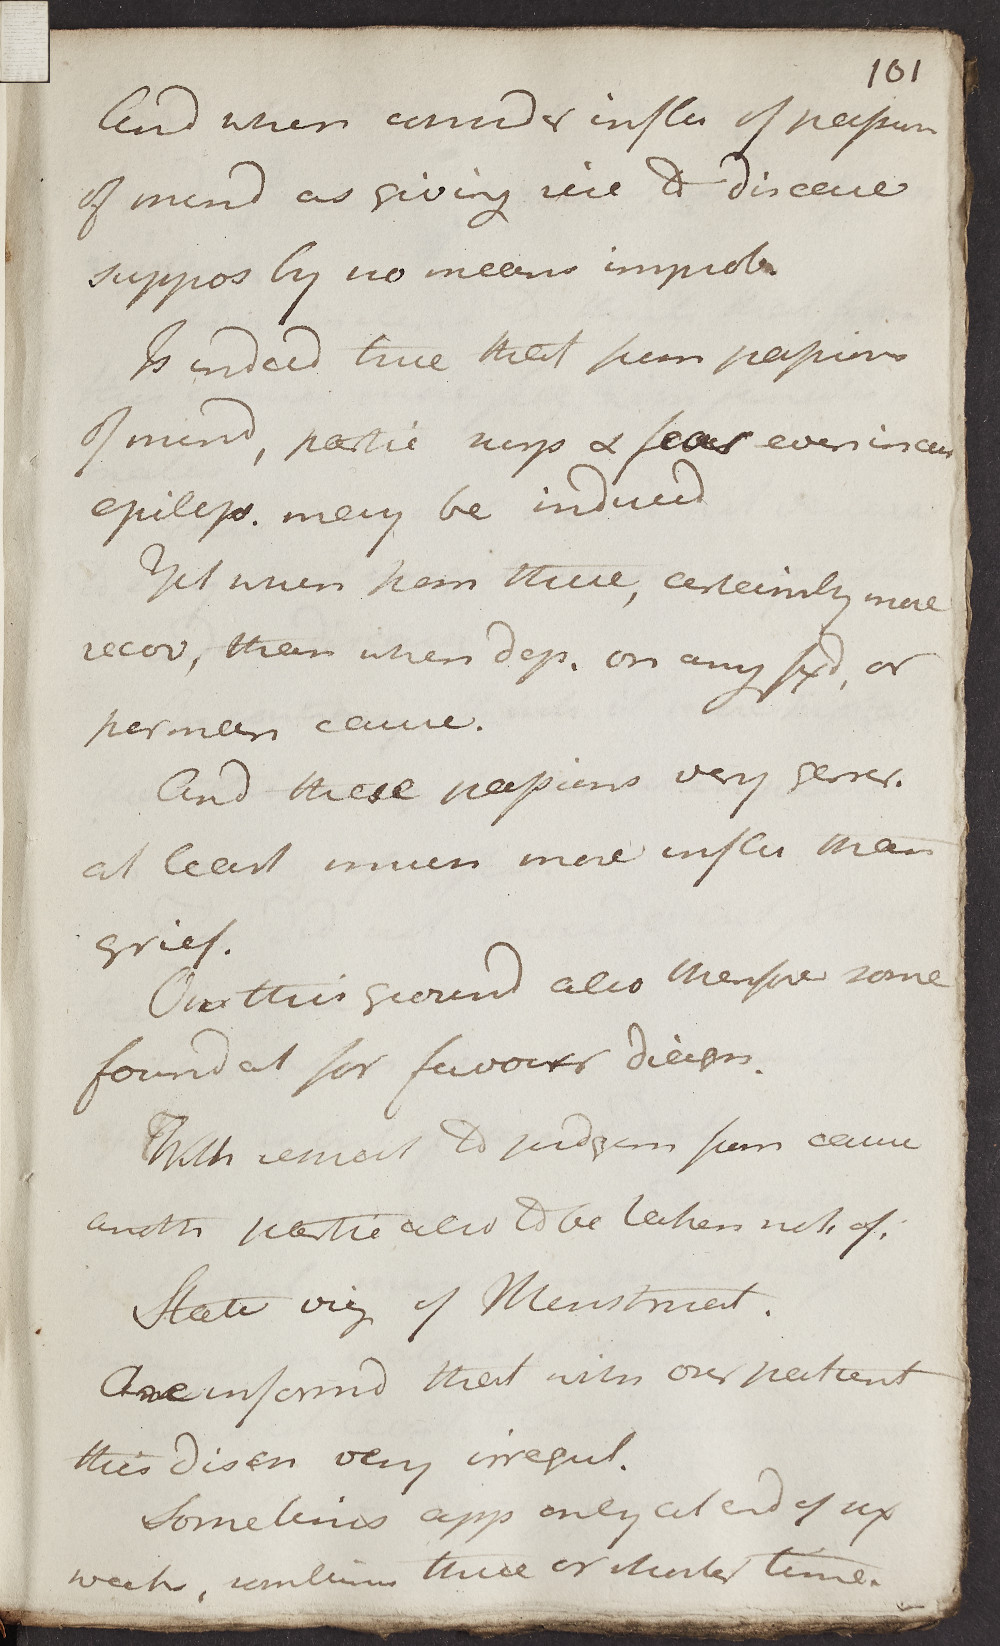 101
And when consider influ of passions
of mind as giving rise to disease
suppos by no means improb.
Is indeed true that from passions
of mind, partic surp & fear even incur
epilep. may be induced
Yet when from these, certainly more
recov, than when dep. on any fxd, or
perman cause.
And these passions very gener.
at least much more influ than
grief.
On this ground also therefore some
foundat for favour diagn.
With respect to judgem from cause
anoth partic also to be taken not. of.
State viz of Menstruat.
Are informd that with our patient
this disch very irregul.
Sometimes app only at end of six
weeks, sometimes three or shorter time.